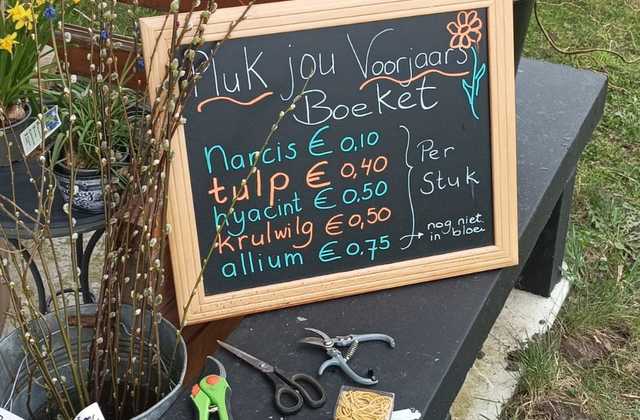 Pluk jou Voorjaars
Boeket
narcis € 0,10
tulp € 0,40
hyacint € 0.50
krulwilg € 0,50
allium € 0.75
Per
Stuk
nog niet
in bloei